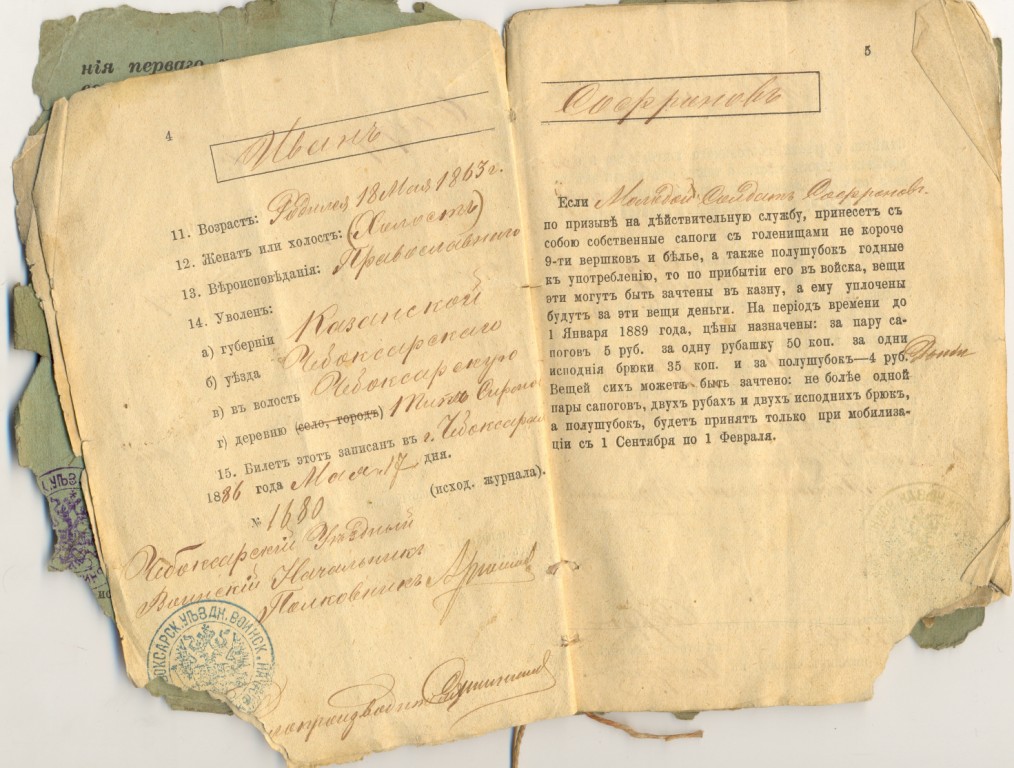 нія перваго
4
Иванъ
11. Возрастъ: Родился 18 Мая 1863 г.
12. Женатъ или холостъ: (Холостъ)
13. Вѣроисповѣданія: Православнаго
14. Уволенъ:
а) губерніи Казанской
б) уѣзда Чебоксарскаго
в) въ волость Чебоксарскую
г) деревню (село, городъ)
15. Билетъ этотъ записанъ въ г. Чебоксарах
1886 года Мая 17 дня.
№ 1680 (исход. журнала).
Чебоксарскій Уѣздный
Воинскій Начальникъ
Полковникъ
ОКСАРСК. УѢЗДН. ВОИНСК. НА
5
Софроновъ
Если Молодой Солдатъ Софроновъ
по призывѣ на дѣйствительную службу, принесетъ съ
собою собственные сапоги съ голенищами не короче
9-ти вершковъ и бѣлье, а также полушубокъ годные
къ употребленію, то по прибытіи его въ войска, вещи
эти могутъ быть зачтены въ казну, а ему уплочены
будутъ за эти вещи деньги. На періодъ времени до
1 Января 1889 года, цѣны назначены: за пару са-
поговъ 5 руб. за одну рубашку 50 коп. за одни
исподнія брюки 35 коп. и за полушубокъ—4 руб.
Вещей сихъ можетъ быть зачтено: не болѣе одной
пары сапоговъ, двухъ рубахъ и двухъ исподнихъ брюкъ,
а полушубокъ, будетъ принятъ только при мобилиза-
ціи съ 1 Сентября по 1 Февраля.